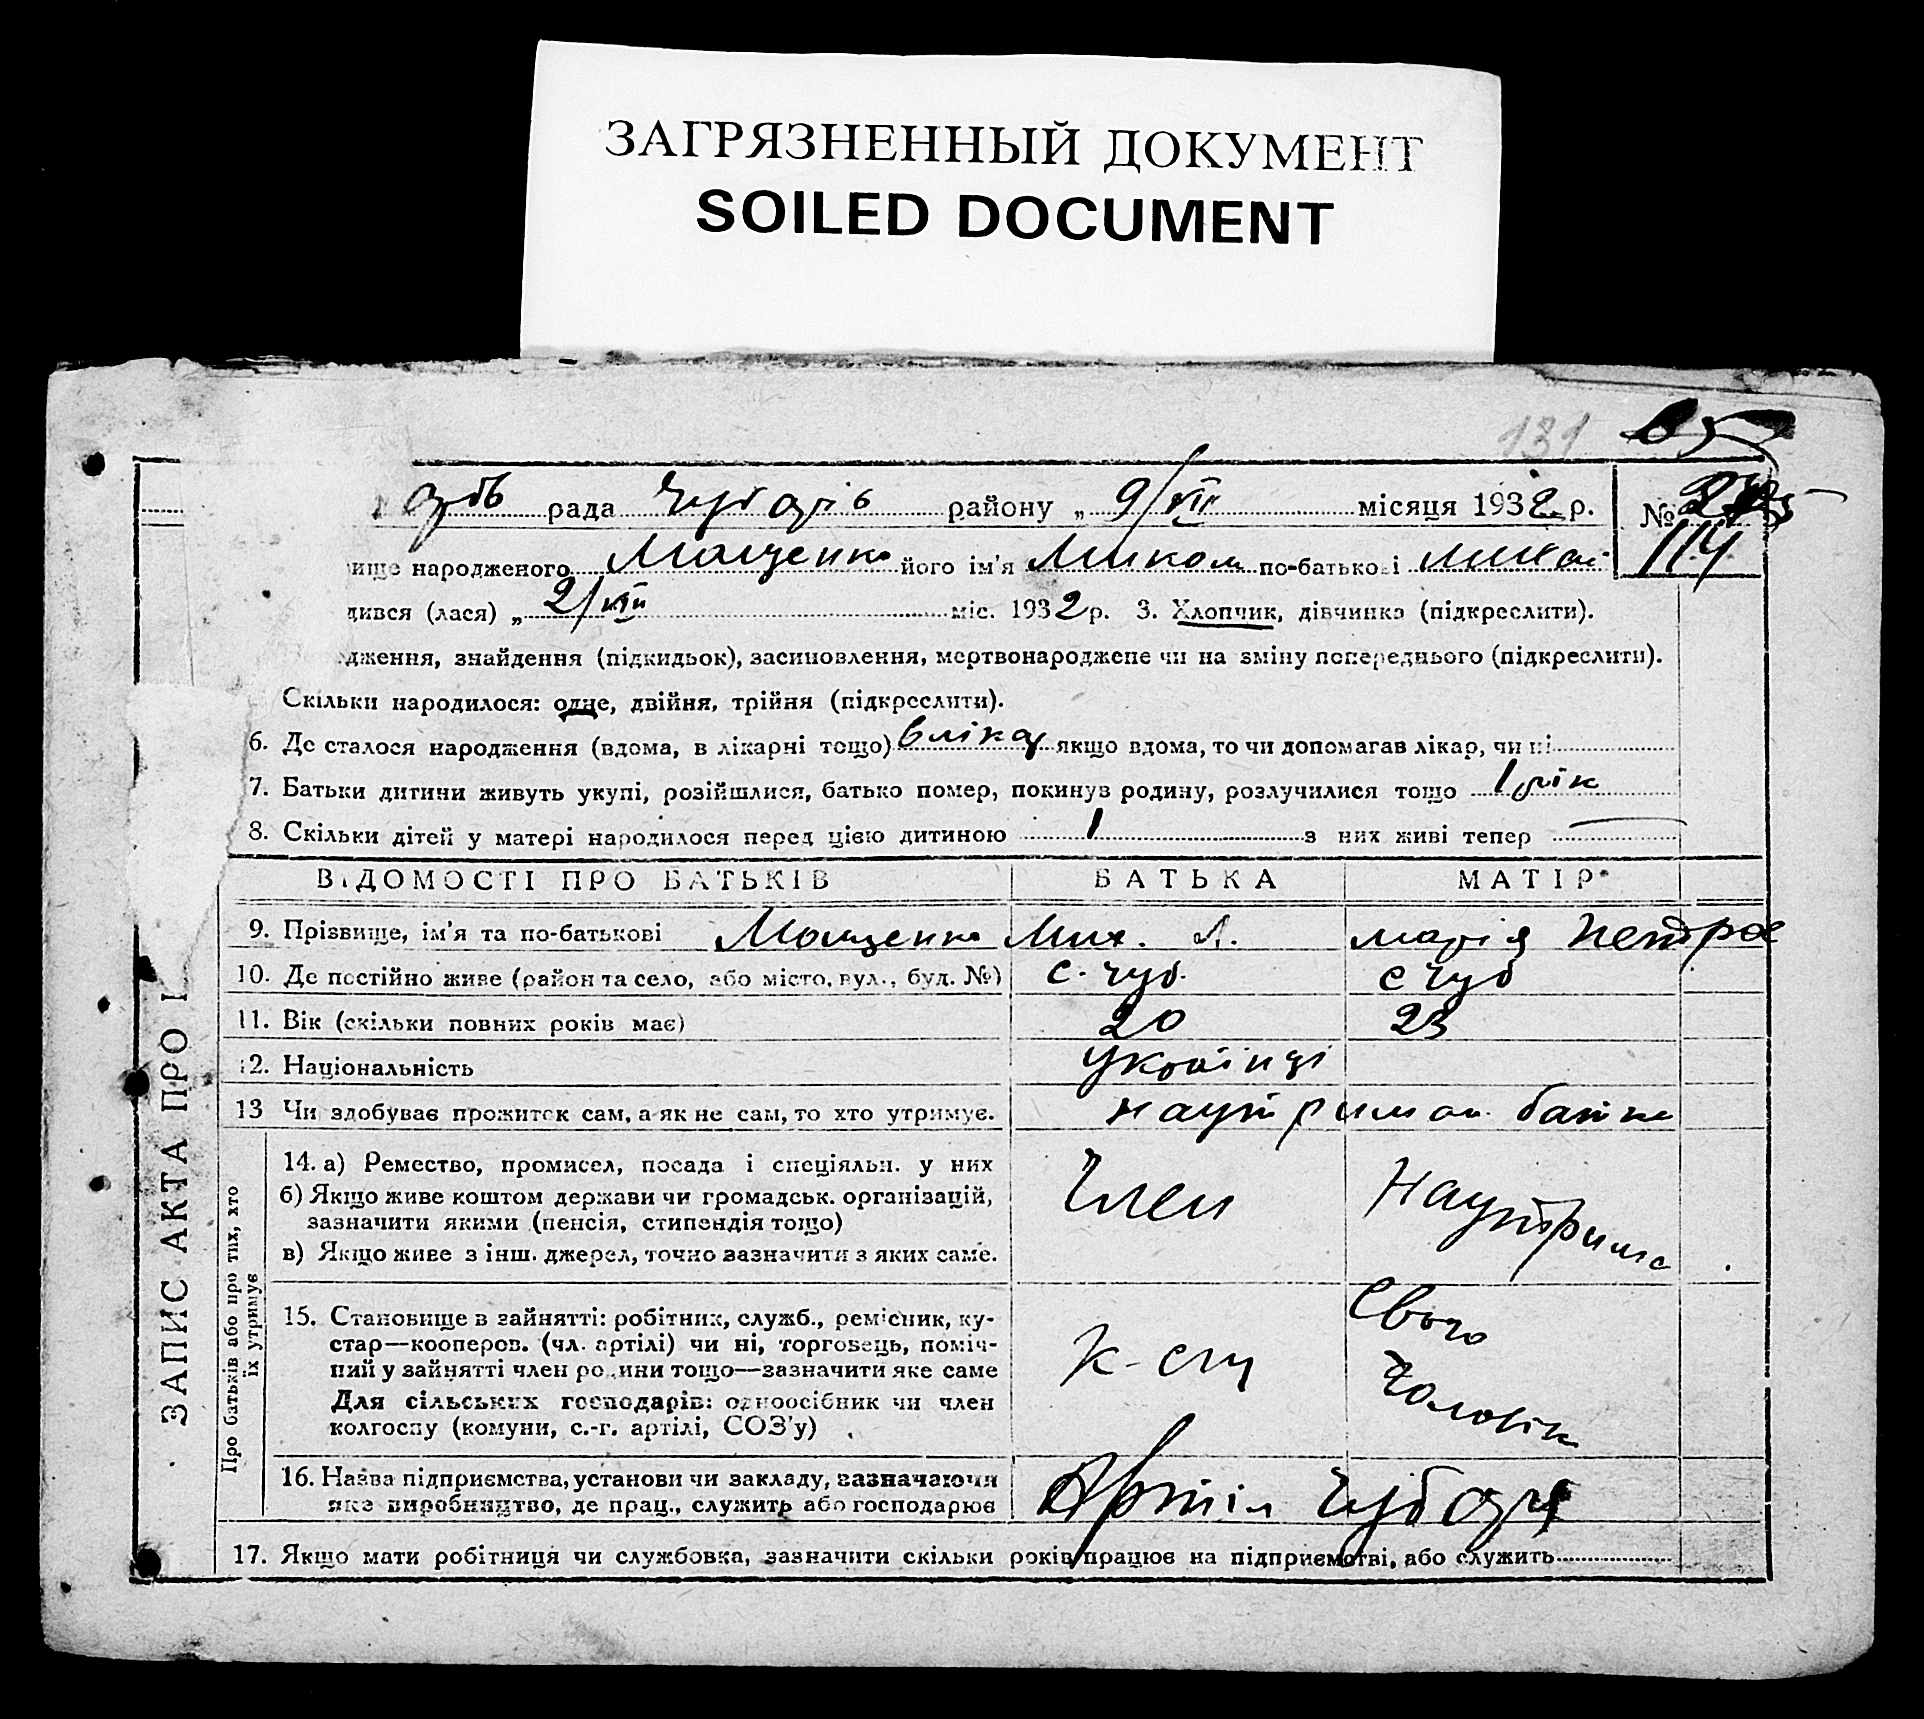 ЗАГРЯЗНЕННЫЙ ДОКУМЕНТ
SOILED DOCUMENT
131
рада району „ 9/VIII місяця 1932 р. №
114
ище народженого Мащенко його ім'я Микола по-батькові Михай
дився (лася) „ 2/VIII міс. 1932 р. 3. Хлопчик, дівчинка (підкреслити).
дження, знайдення (підкидьок), засиновлення, мертвонароджене чи на зміну попереднього (підкреслити).
Скільки народилося: одне, двійня, трійня (підкреслити).
6. Де сталося народження (вдома, в лікарні тощо) в лікар якщо вдома, то чи допомагав лікар, чи ні
7. Батьки дитини живуть укупі, розійшлися, батько помер, покинув родину, розлучилися тощо 1 рік
8. Скільки дітей у матері народилося перед цією дитиною 1 з них живі тепер —
ВІДОМОСТІ ПРО БАТЬКІВ БАТЬКА МАТІР
9. Прізвище, ім'я та по-батькові Мащенко Мих. Л. Марія Петров
10. Де постійно живе (район та село, або місто, вул., буд. №) с. Чуб. с Чуб
11. Вік (скільки повних років має) 20 23
12. Національність Українці
13 Чи здобуває прожиток сам, а як не сам, то хто утримує. на утриман. батька
14. а) Ремество, промисел, посада і спеціяльн. у них
б) Якщо живе коштом держави чи громадськ. організацій,
зазначити якими (пенсія, стипендія тощо)
в) Якщо живе з інш. джерел, точно зазначити з яких саме.
Член На утрима
15. Становище в зайнятті: робітник, служб., ремісник, ку-
стар—кооперов. (чл. артілі) чи ні, торговець, поміч-
ний у зайнятті член родини тощо—зазначити яке саме
Для сільських господарів: одноосібник чи член
колгоспу (комуни, с.-г. артілі, СОЗ'у)
к-спу Свого
Чоловік
16. Назва підприємства, установи чи закладу, зазначаючи
яке виробництво, де прац., служить або господарює
Артіл Чубаря
17. Якщо мати робітниця чи службовка, зазначити скільки років працює на підприємстві, або служить
ЗАПИС АКТА ПРО
Про батьків або про тих, хто
їх утримує